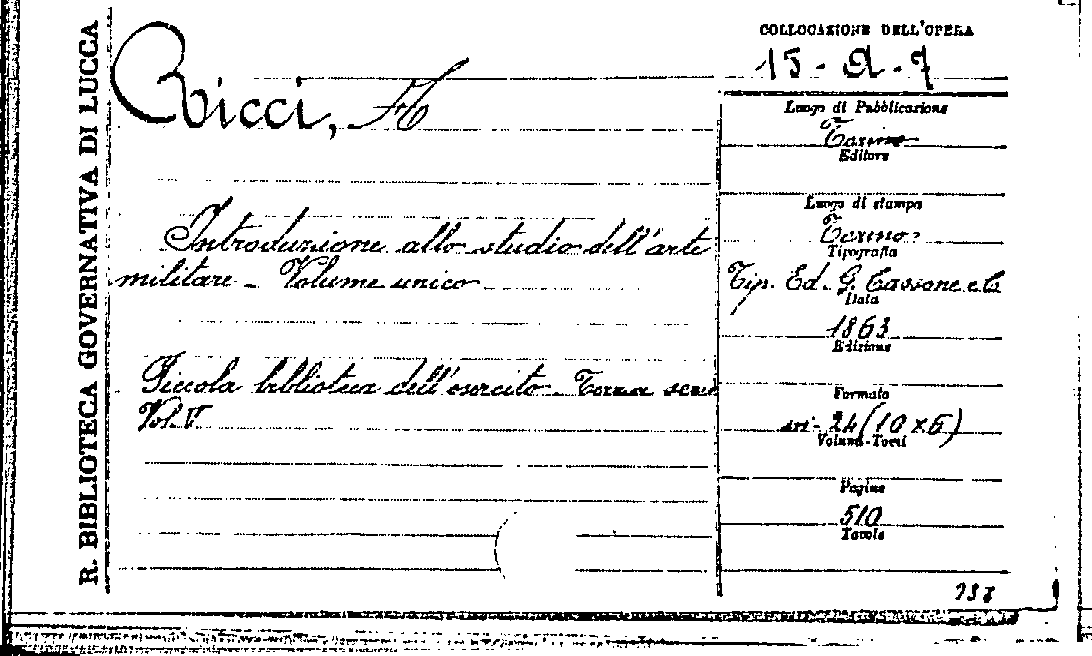 R. BIBLIOTECA GOVERNATIVA DI LUCCA
Ricci,
Introduzione allo studio dell'arte
militare - Volume unico
Piccola biblioteca dell'esercito - Terza serie
Vol. V
COLLOCAZIONE DELL'OPERA
15 - Q - 7
Luogo di Pubblicazione
Torino
Editore
Luogo di stampa
Torino
Tipografia
Tip. Ed. G. Cassone e C.
Data
1863
Edizione
Formato
in-24 (10 x 6)
Volumi-Tomi
Pagine
510
Tavole